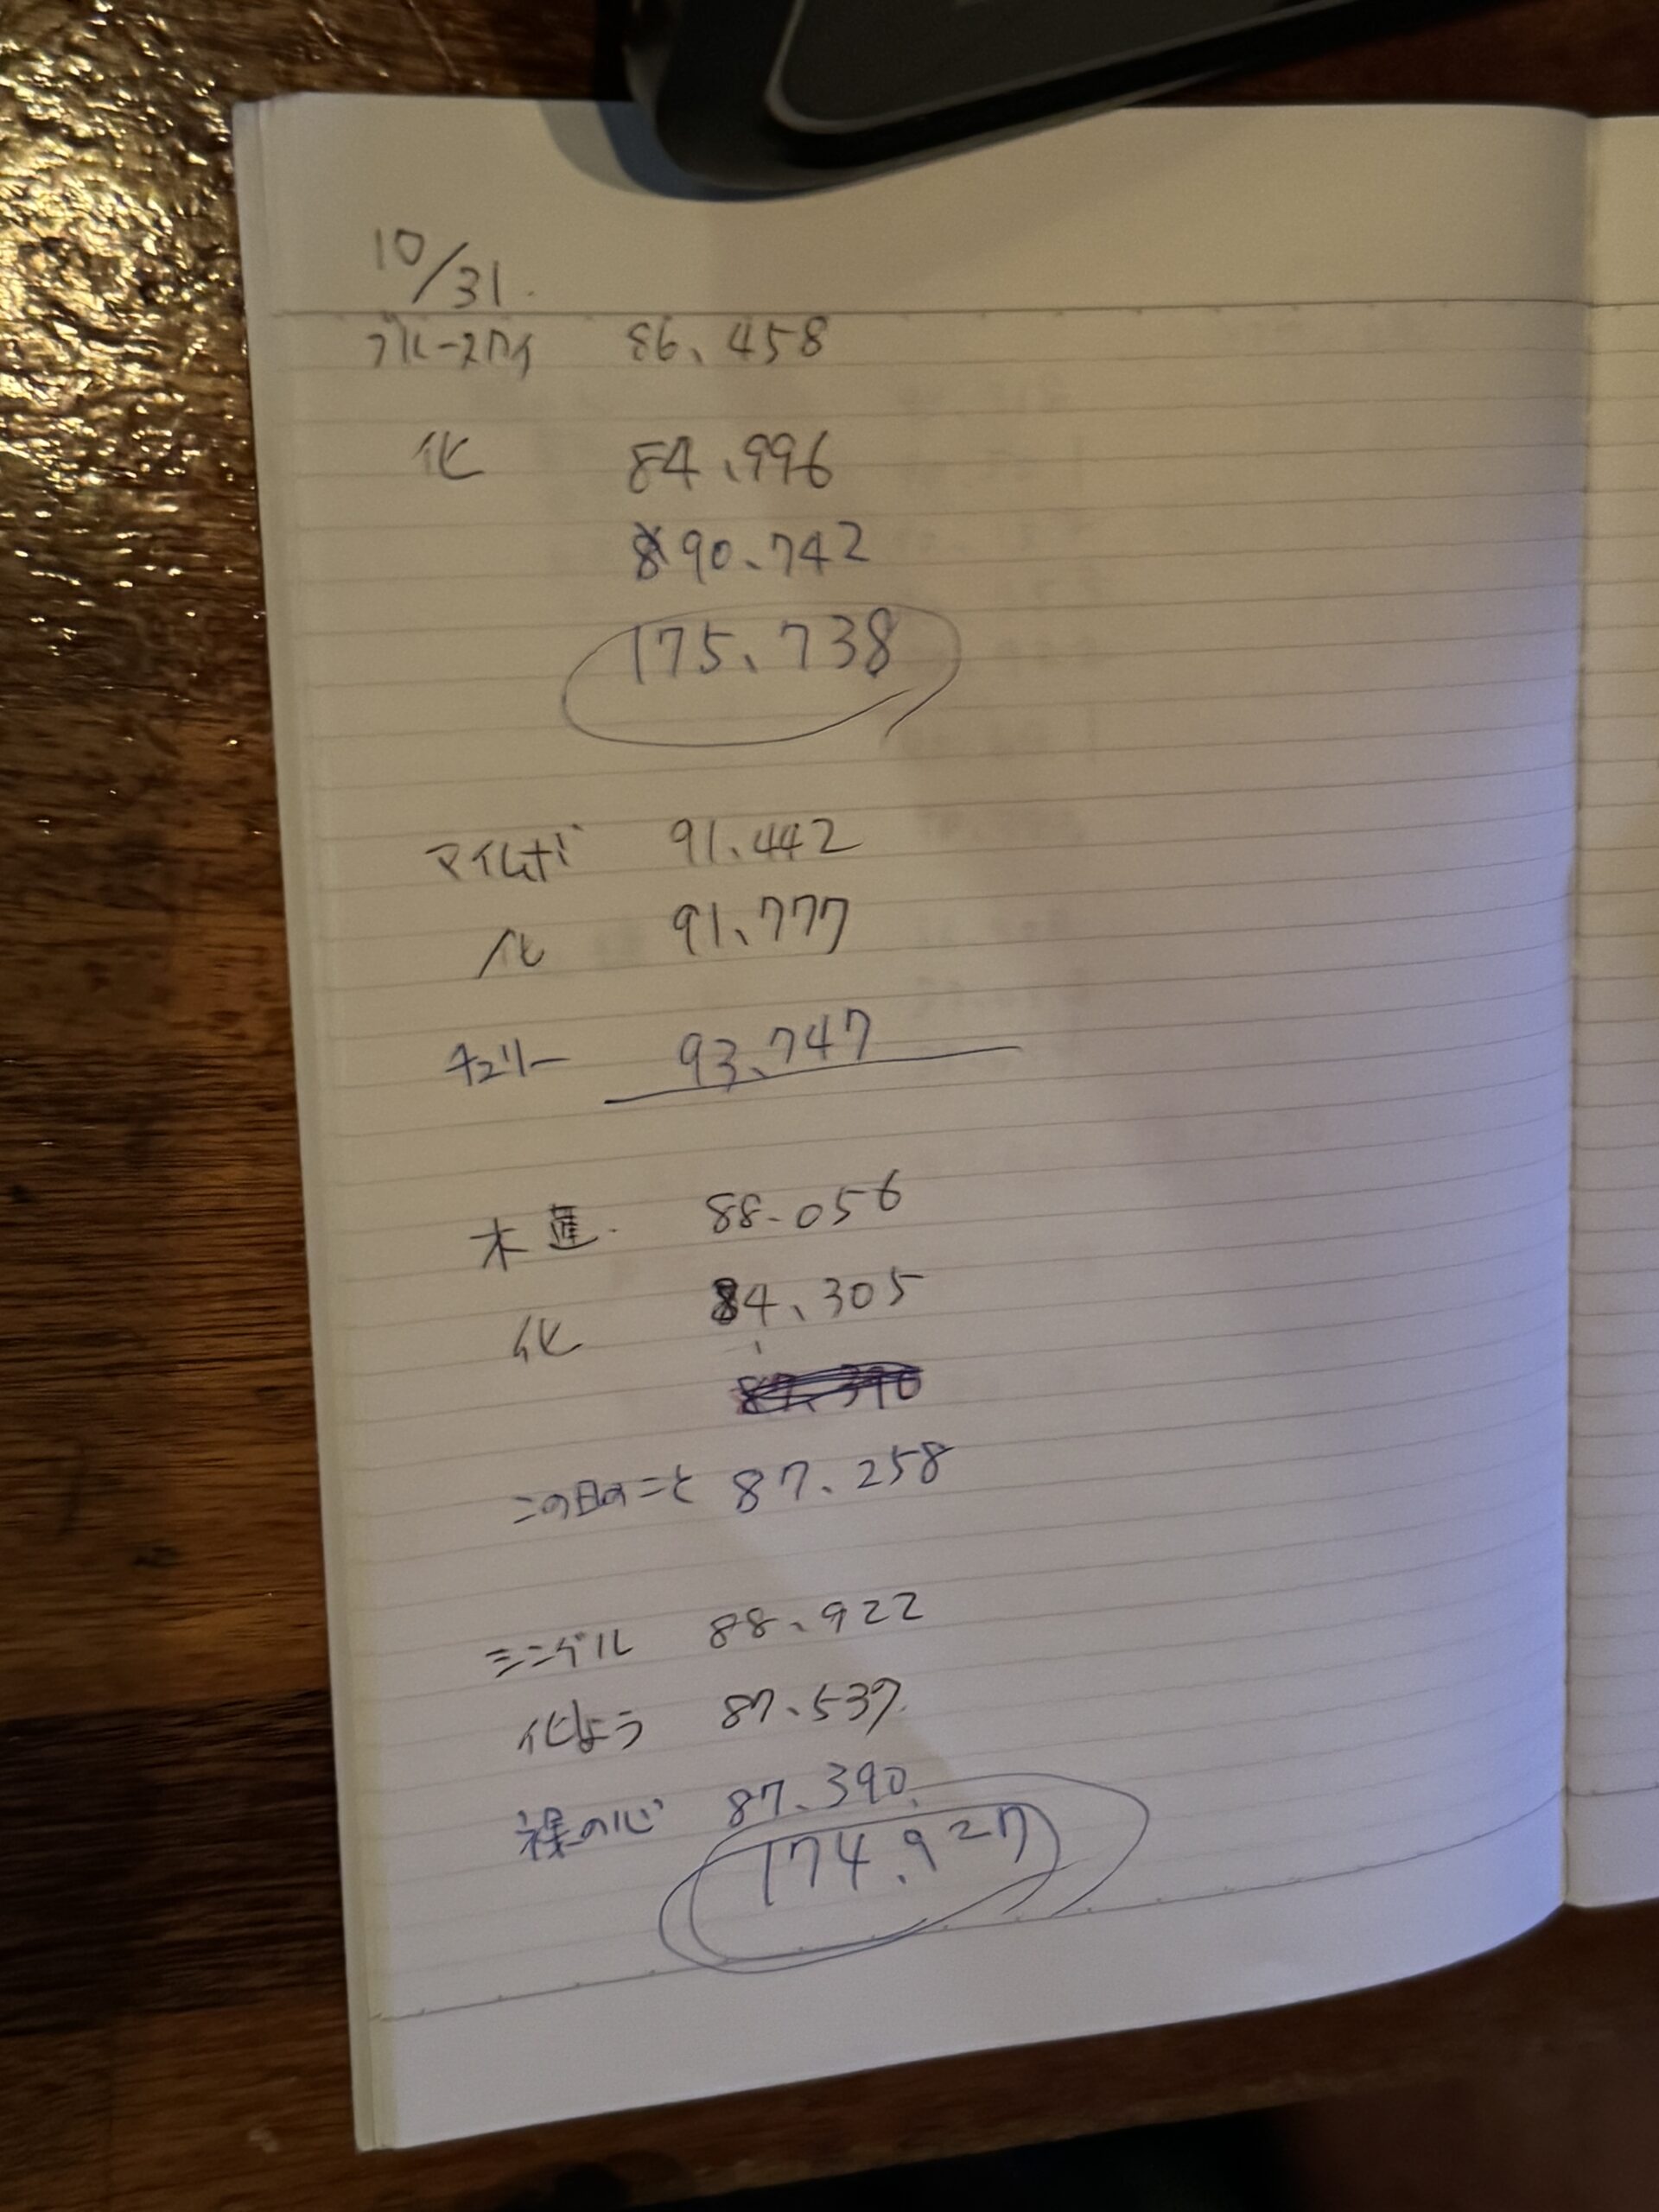 10/31.
ブルースカイ 86.458
化 84.996
90.742
175.738
マイムボ 91.442
化 91.777
チェリー 93.747
木蓮. 88.056
化 84.305
この日のこと 87.258
ミンゲル 88.922
化よう 87.537
裸の心 87.390
174.927